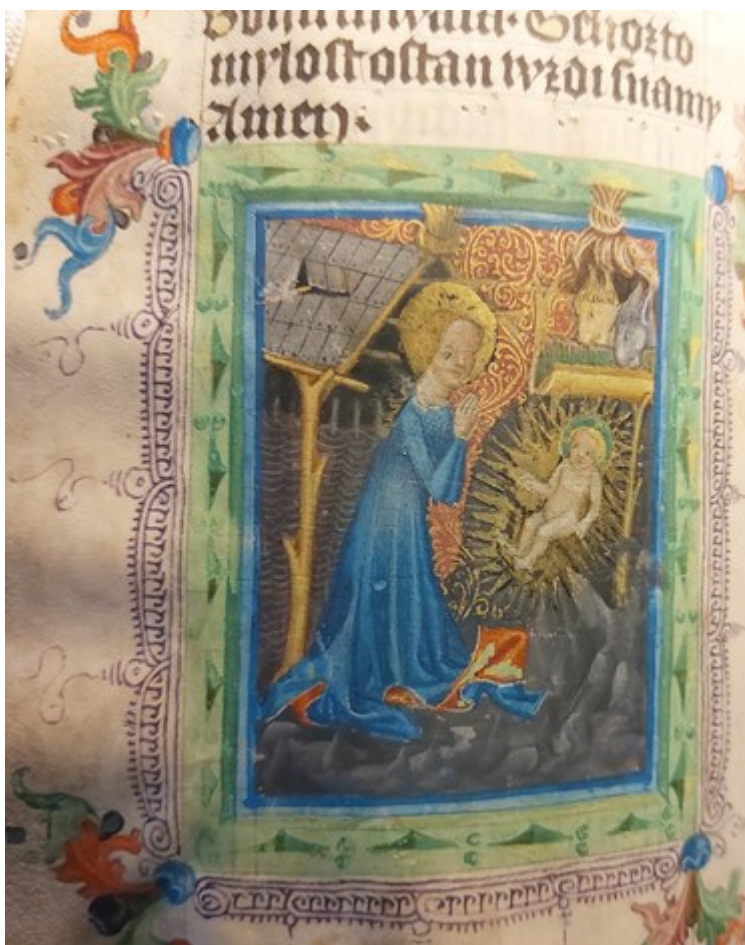 Schozto
mylost ostan wzdi snamy
Amen.